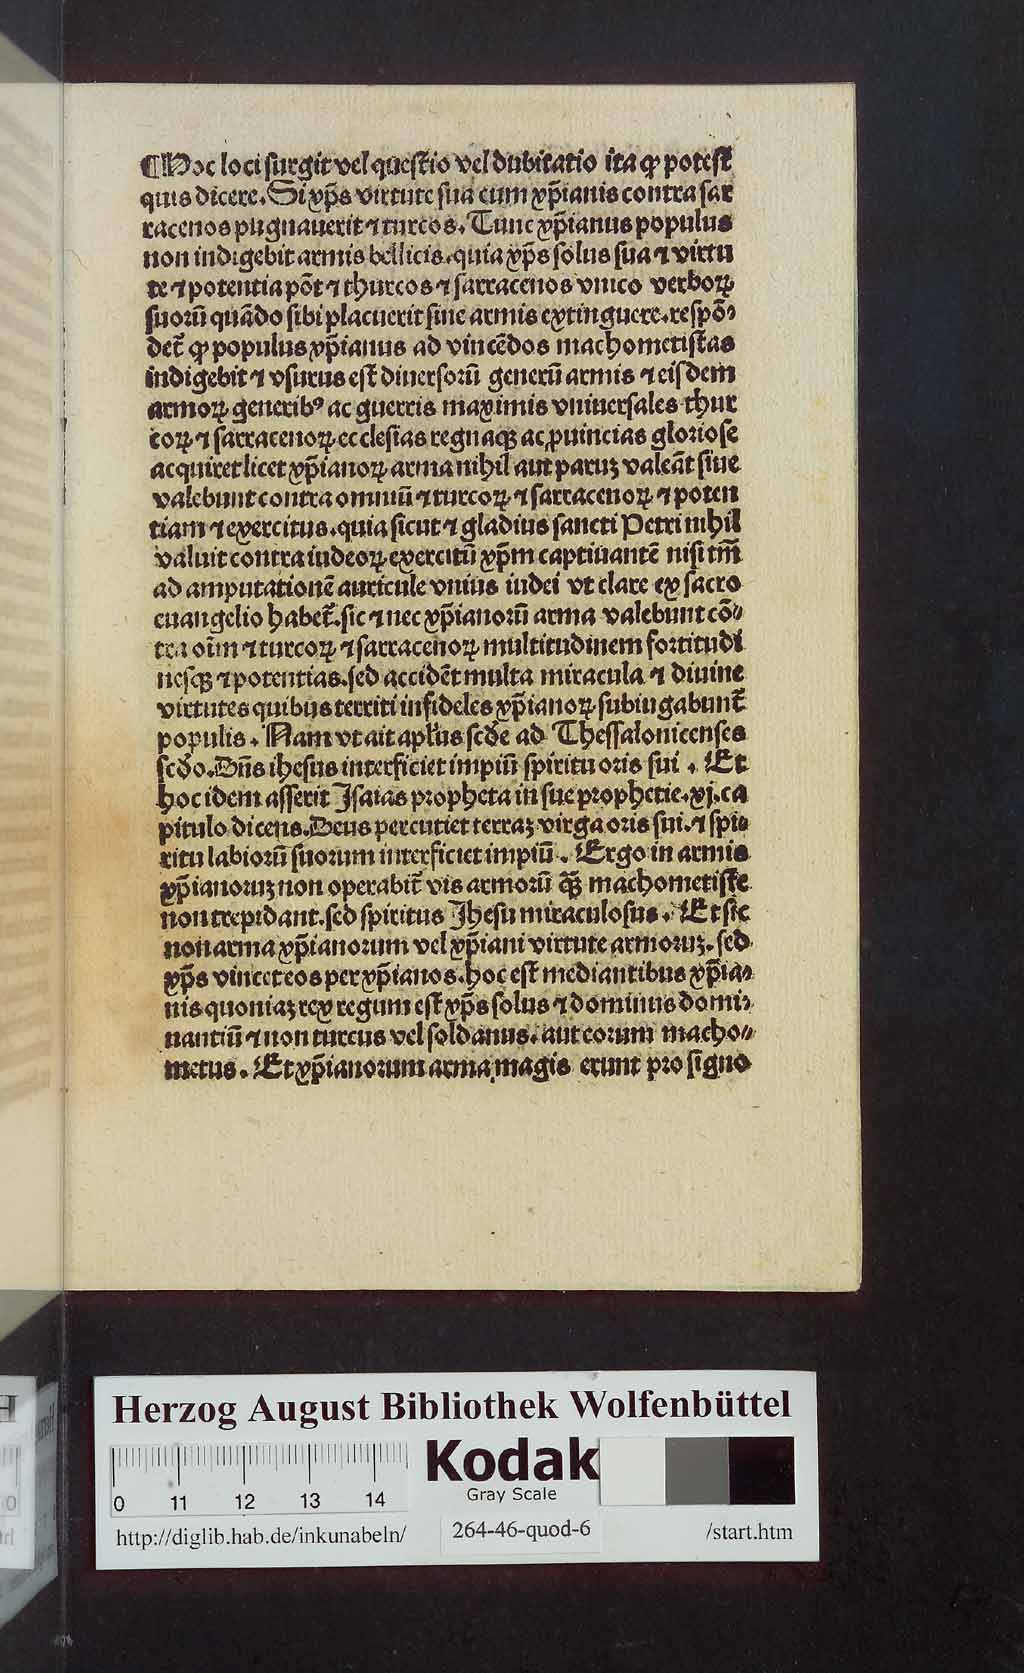 ¶Hoc loci surgit vel questio vel dubitatio ita ꝙ potest
quis dicere. Si xp̄s virtute sua cum xp̄ianis contra sar
racenos pugnauerit ⁊ turcos. Tunc xp̄ianus populus
non indigebit armis bellicis. quia xp̄s solus sua ⁊ virtu
te ⁊ potentia põt ⁊ thurcos ⁊ sarracenos vnico verboꝝ
suorū quādo sibi placuerit sine armis extinguere. respō⸗
det̄ ꝙ populus xp̄ianus ad vincēdos machometistas
indigebit ⁊ vsurus est diuersorū generū armis ⁊ eisdem
armoꝝ generibꝰ ac guerris maximis vniuersales thur
coꝝ ⁊ sarracenoꝝ ecclesias regnaqꝫ ac ꝓuincias gloriose
acquiret licet xp̄ianoꝝ arma nihil aut paruꝫ valeāt siue
valebunt contra omniū ⁊ turcoꝝ ⁊ sarracenoꝝ ⁊ poten
tiam ⁊ exercitus. quia sicut ⁊ gladius sancti Petri nihil
valuit contra iudeoꝝ exercitū xp̄m captiuantē nisi tm̄
ad amputationē auricule vnius iudei vt clare ex sacro
euangelio habet̄. sic ⁊ nec xp̄ianorū arma valebunt cō⸗
tra oīm ⁊ turcoꝝ ⁊ sarracenoꝝ multitudinem fortitudi
nesqꝫ ⁊ potentias. sed accidēt multa miracula ⁊ diuine
virtutes quibus territi infideles xp̄ianoꝝ subiugabunt̄
populis. Nam vt ait apl̄us scd̄e ad Thessalonicenses
scd̄o. Dn̄s ihesus interficiet impiū spiritu oris sui. Et
hoc idem asserit Isaias propheta in sue prophetie. xj. ca
pitulo dicens. Deus percutiet terraꝫ virga oris sui. ⁊ spi⸗
ritu labiorū suorum interficiet impiū. Ergo in armis
xp̄ianoruꝫ non operabit̄ vis armorū qꝫ̄ machometiste
non trepidant. sed spiritus Jhesu miraculosus. Et sic
non arma xp̄ianorum vel xp̄iani virtute armoruꝫ. sed
xp̄s vincet eos per xp̄ianos. hoc est mediantibus xp̄ia⸗
nis quoniaꝫ rex regum est xp̄s solus ⁊ dominus domi⸗
nantiū ⁊ non turcus vel soldanus. aut eorum macho⸗
metus. Et xp̄ianorum arma magis erunt pro signo
Herzog August Bibliothek Wolfenbüttel
Kodak
Gray Scale
0 11 12 13 14
http://diglib.hab.de/inkunabeln/ 264-46-quod-6 /start.htm